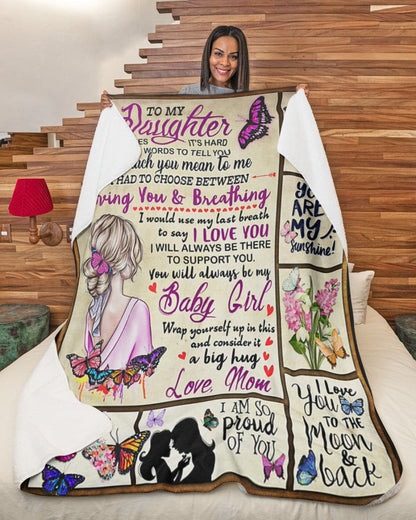 TO MY
Daughter
ES IT'S HARD
WORDS TO TELL YOU
ch you mean to me
HAD TO CHOOSE BETWEEN
ving You & Breathing
I would use my last breath
to say I LOVE YOU
I WILL ALWAYS BE THERE
TO SUPPORT YOU.
You will always be my
Baby Girl
Wrap yourself up in this
and consider it
a big hug
Love, Mom
YO
ARE
MY
Sunshine!
I AM SO
proud
OF YOU
I Love
You
TO THE
Moon
&
back